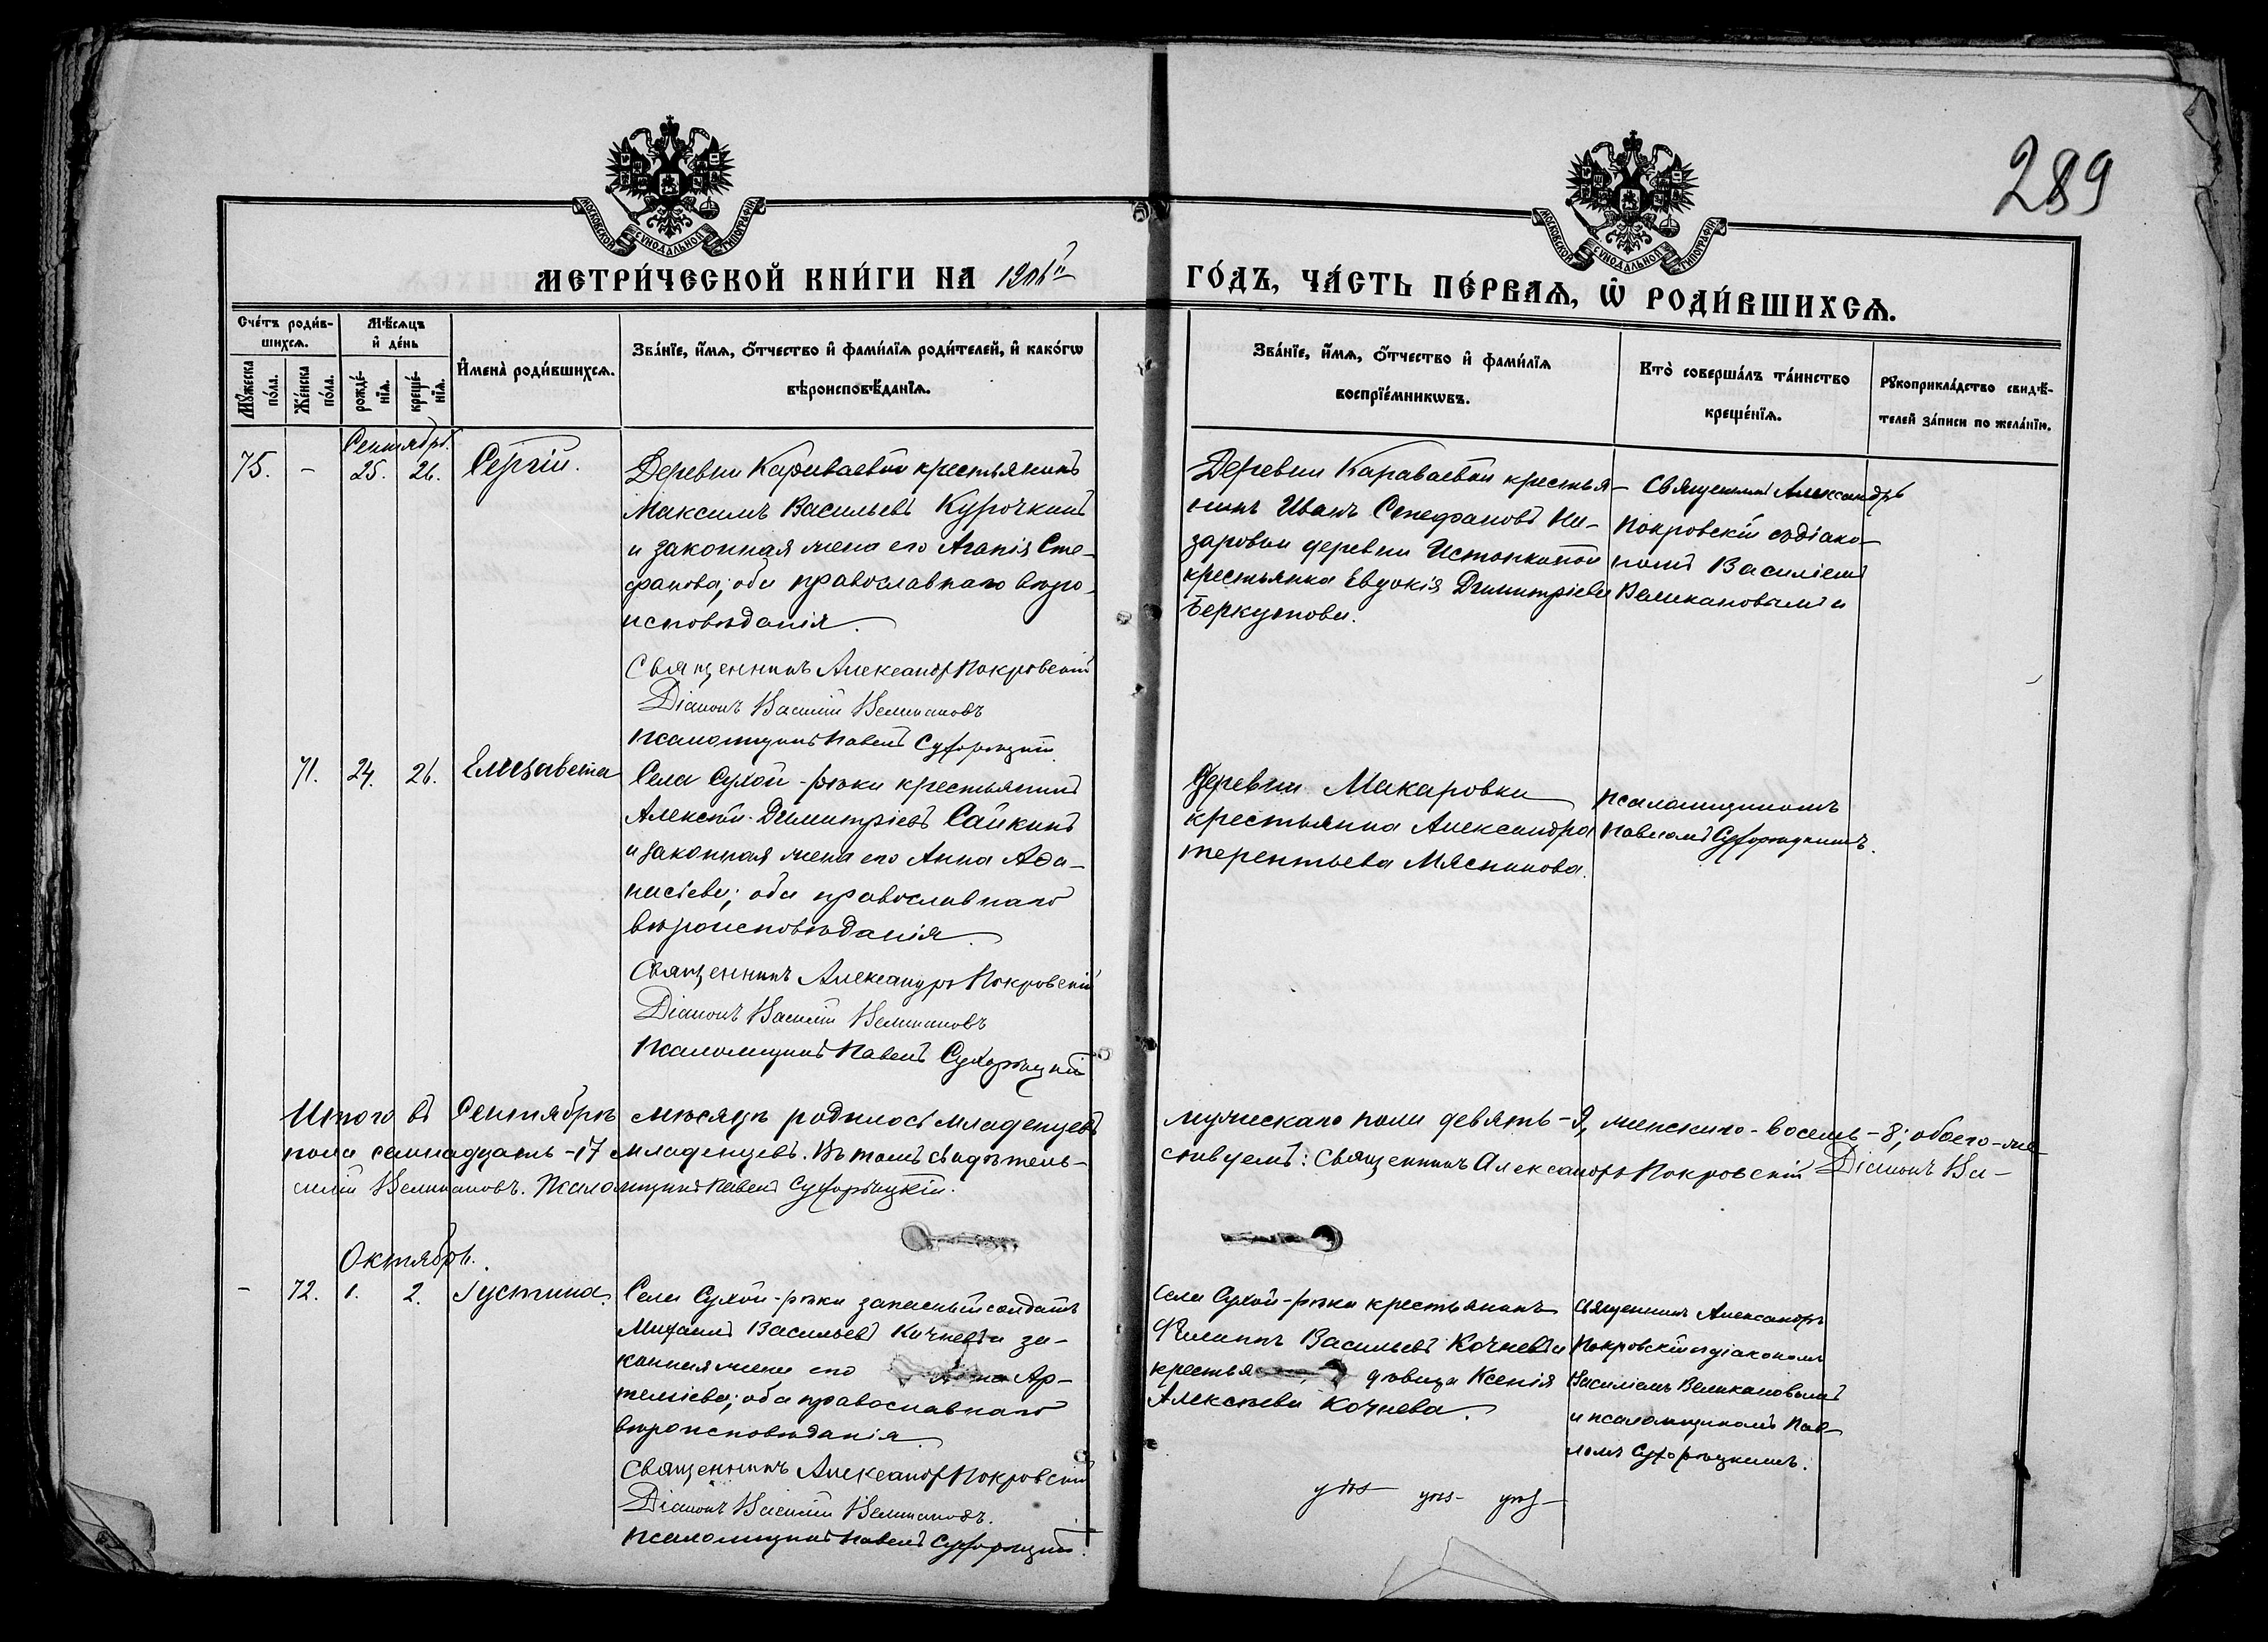 289
МОСКОВСКОЙ СѴНОДАЛЬНОЙ ТИПОГРАФІИ
МОСКОВСКОЙ СѴНОДАЛЬНОЙ ТИПОГРАФІИ
МЕТРИ́ЧЕСКОЙ КНИ́ГИ НА 1906й ГО́ДЪ, ЧА́СТЬ ПЕ́РВАѦ, Ѡ҆ РОДИ́ВШИХСѦ.
Сче́тъ роди́в-
шихсѧ.
Мꙋ́жеска по́ла.
Же́нска по́ла.
Мѣ́сѧцъ
и҆ де́нь
рожде́-
нїѧ.
креще́-
нїѧ.
И҆мена̀ роди́вшихсѧ.
Зва́нїе, и҆́мѧ, ѻ҆́тчество и҆ фами́лїѧ роди́телей, и҆ како́гѡ
вѣроисповѣ́данїѧ.
Зва́нїе, и҆́мѧ, ѻ҆́тчество и҆ фами́лїѧ
воспрїе́мникѡвъ.
Кто̀ соверша́лъ та́инство
креще́нїѧ.
Рꙋкоприкла́дство свидѣ́-
телей за́писи по жела́нїю.
Сентябрь.
75. - 25. 26. Сергій.
Деревни Караваевой крестьянинъ
Максимъ Васильевъ Курочкинъ
и законная жена его Агапія Сте-
фанова; оба православнаго вѣро-
исповѣданія.
Священникъ Александръ Покровскій
Діаконъ Василій Великановъ
Псаломщикъ Павелъ Сухорѣцкій.
Деревни Караваевой крестья-
нинъ Иванъ Стефановъ На-
заровъ и деревни
крестьянка Евдокія Димитріева
Беркутова.
Священникъ Александръ
Покровскій съ діако-
номъ Василіемъ
Великановымъ и
71. 24. 26. Елизавета
Села Сухой-рѣки крестьянинъ
Алексѣй Димитріевъ Сайкинъ
и законная жена его Анна Аѳа-
насіева; оба православнаго
вѣроисповѣданія.
Священникъ Александръ Покровскій
Діаконъ Василій Великановъ
Псаломщикъ Павелъ Сухорѣцкій
Деревни Макаровки
крестьянка Александра
Терентьева Мясникова.
Псаломщикомъ
Павломъ Сухорѣцкимъ.
Итого въ Сентябрѣ мѣсяцѣ родилось младенцевъ мужескаго пола девять-9, женскаго-восемь-8; обоего-же
пола семнадцать-17 младенцевъ. Въ томъ свидѣтель-ствуемъ: Священникъ Александръ Покровскій Діаконъ Ва-
силій Великановъ. Псаломщикъ Павелъ Сухорѣцкій.
Октябрь.
- 72. 1. 2. Іустина.
Села Сухой-рѣки запасный солдатъ
Михаилъ Васильевъ Кочневъ и за-
конная жена его Анна Ар-
темiева; оба православнаго
вѣроисповѣданія.
Священникъ Александръ Покровскій
Діаконъ Василій Великановъ.
Псаломщикъ Павелъ Сухорѣцкій.
Села Сухой-рѣки крестьянинъ
Филиппъ Васильевъ Кочневъ и
крестья дѣвица Ксенія
Алексѣева Кочнева.
Священникъ Александръ
Покровскій съ діакономъ
Василіемъ Великановымъ
и псаломщикомъ Пав-
ломъ Сухорѣцкимъ.